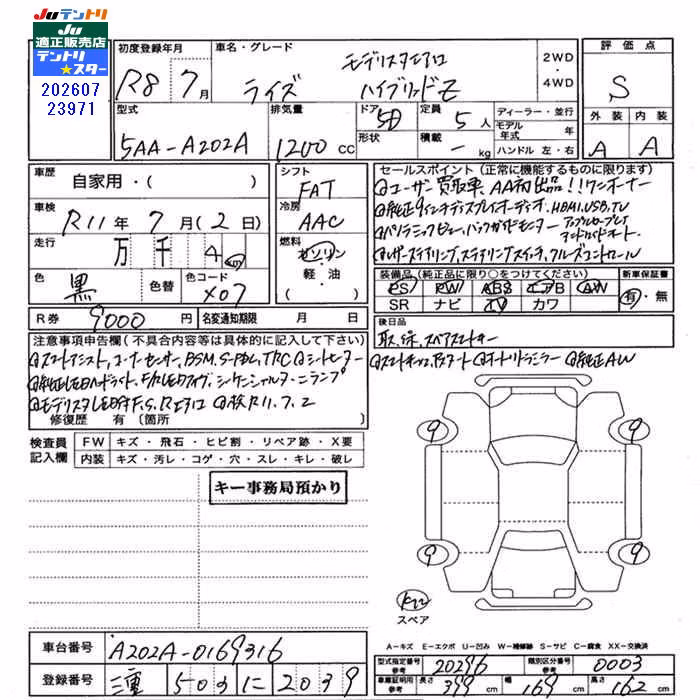 Juテントリ
Ju
適正販売店
テントリ
★スター
202607
23971
初度登録年月
R8年7月
車名・グレード
モデリスタエアロ
ライズ ハイブリッドZ
2WD
・
4WD
評価点
S
外装 内装
A A
型式
5AA-A202A
排気量
1200cc
ドア 5D
形状
定員 5人
積載 - kg
ディーラー・並行
モデル年式 年
ハンドル 左・右
車歴
自家用・( )
車検
R11年7月(2日)
走行
万 千 4 km
色
黒
色替
色コード
X07
シフト
FAT
冷房
AAC
燃料
ガソリン
軽油
・( )
R券 9000円
名変通知期限 月 日
セールスポイント(正常に機能するものに限ります)
ユーザー買取車、AA初出品!!ワンオーナー
純正9インチディスプレイオーディオ、HDMI、USB、TV
パノラミックビュー、バックガイドモニター アップルカープレイ
アンドロイドオート
レザーステアリング、ステアリングスイッチ、クルーズコントロール
装備品(純正品に限り○をつけてください)
新車保証書
PS PW ABS エアB AW
SR ナビ TV カワ
有・無
後日品
取、保、スペアスマートキー
スマートキー、Pスタート オートリトラミラー 純正AW
注意事項申告欄(不具合内容等は具体的に記入して下さい)
スマートアシスト、コーナーセンサー、BSM、TRC シートヒーター
純正LEDヘッドライト、F/R LEDフォグ、シーケンシャルターンランプ
モデリスタLED付F、S、Rエアロ 検R11、7、2
修復歴 有(箇所
検査員
記入欄
FW キズ・飛石・ヒビ割・リペア跡・X要
内装 キズ・汚レ・コゲ・穴・スレ・キレ・破レ
キー事務局預かり
9 9
9 9
スペア
A-キズ E-エクボ U-凹み W-補修跡 S-サビ C-腐食 XX-交換済
車台番号 A202A-0169316
登録番号 三重 503 に 2039
型式指定番号 参考 20296 類別区分番号 参考 0003
車庫証明用 参考 長さ 399cm 幅 169cm 高さ 162cm